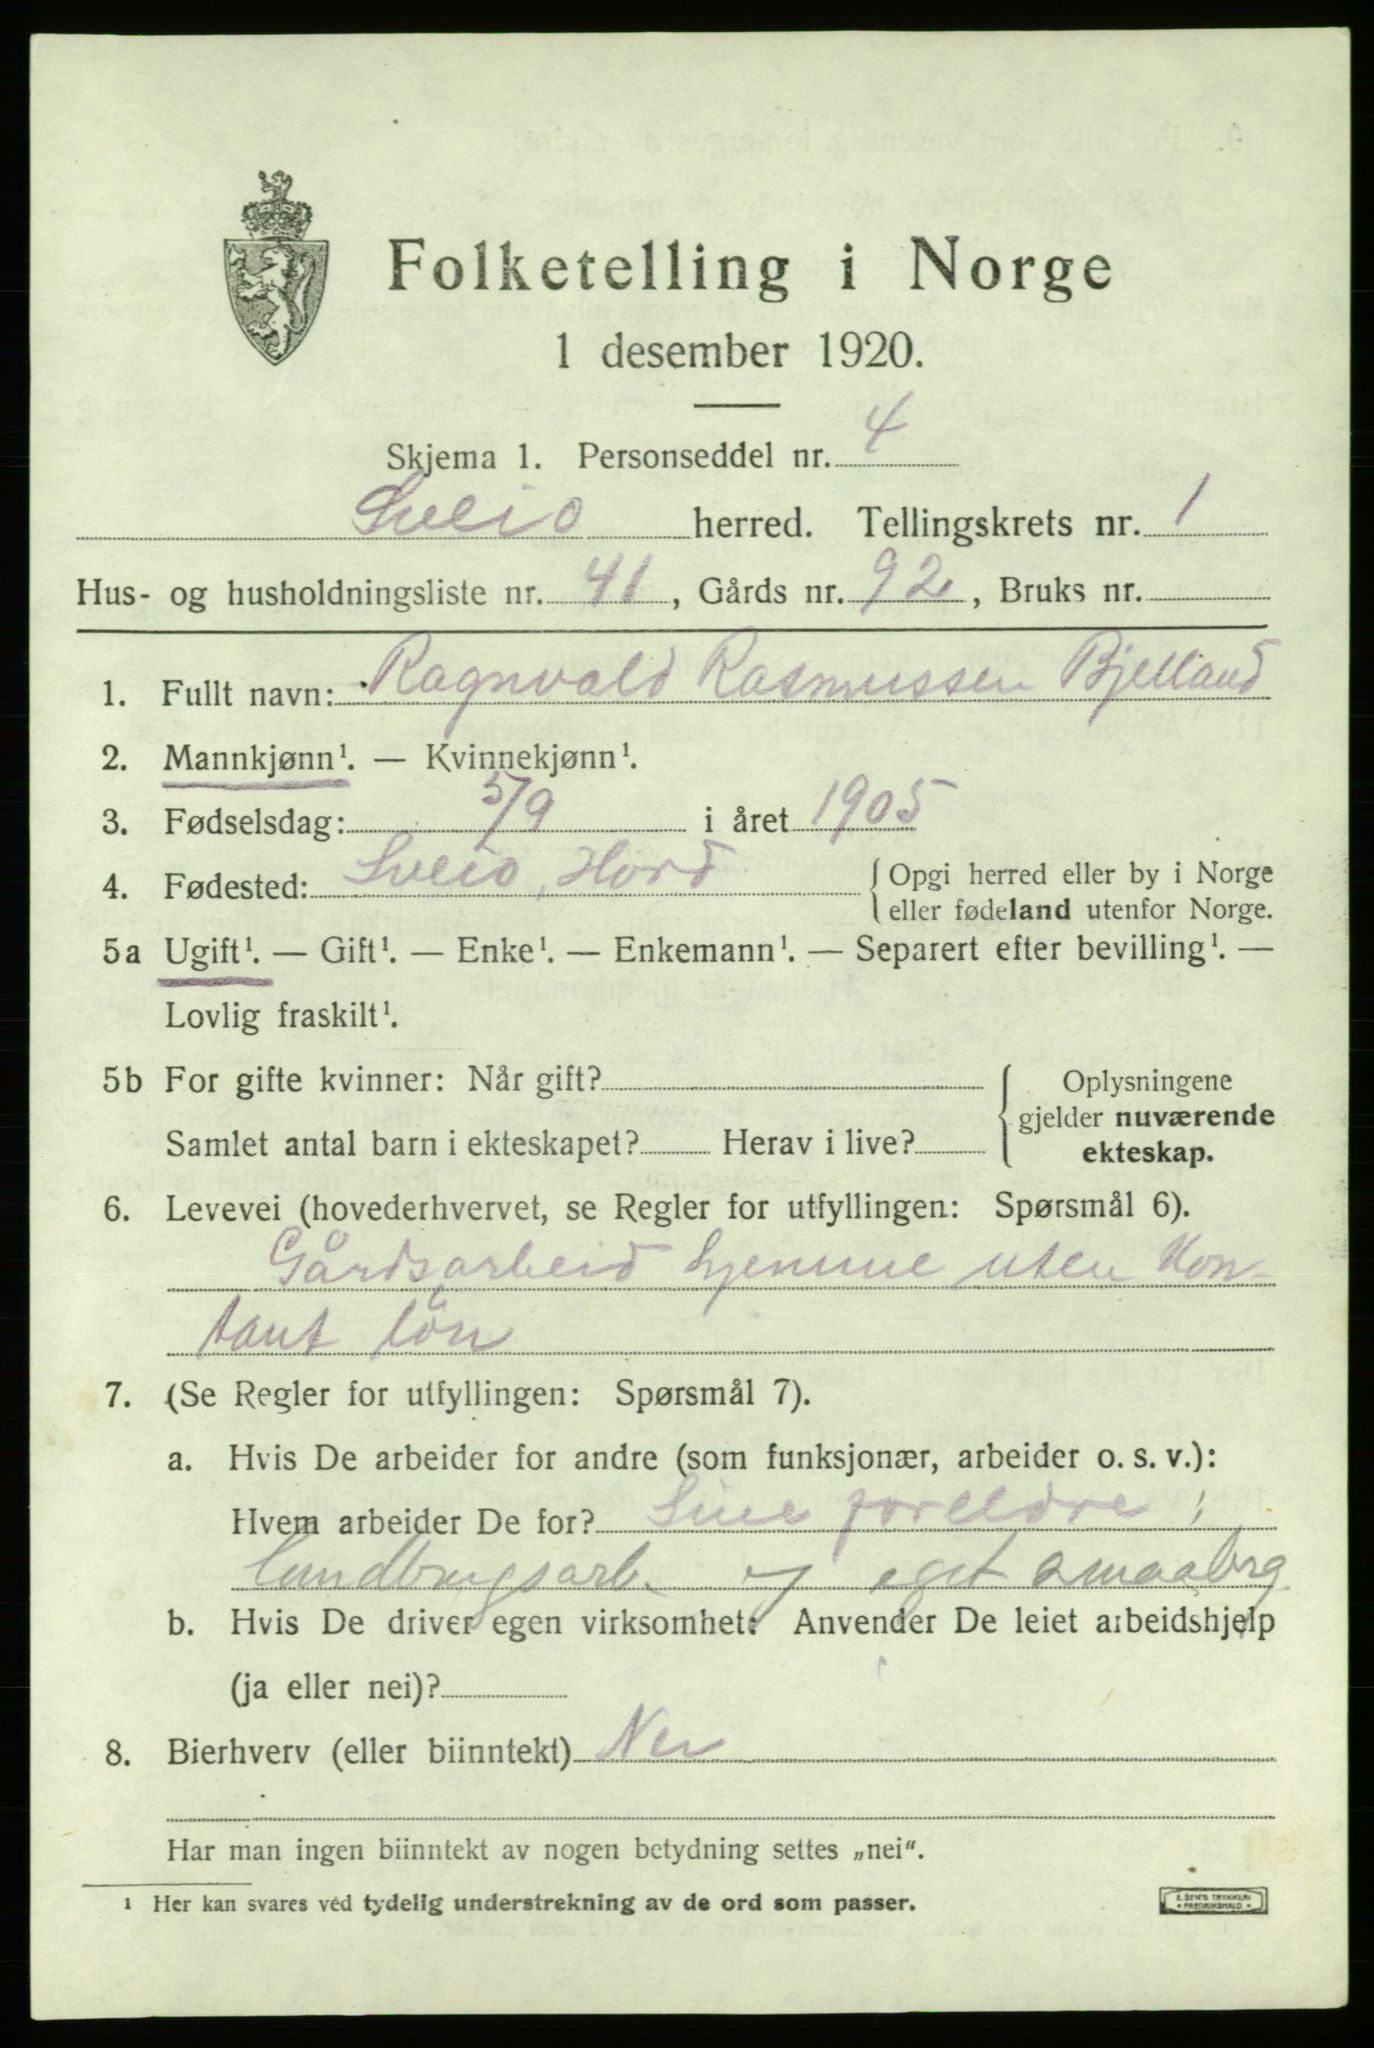 Folketelling i Norge
1 desember 1920.
Skjema 1. Personseddel nr. 4
Sveio herred. Tellingskrets nr. 1
Hus- og husholdningsliste nr. 41, Gårds nr. 92, Bruks nr.
1. Fullt navn: Ragnvald Rasmussen Bjelland
2. Mannkjønn¹. — Kvinnekjønn¹.
3. Fødselsdag: 5/9 i året 1905
4. Fødested: Sveio, Hord { Opgi herred eller by i Norge
eller fødeland utenfor Norge.
5a Ugift¹. — Gift¹. — Enke¹. — Enkemann¹. — Separert efter bevilling¹. —
Lovlig fraskilt¹.
5b For gifte kvinner: Når gift? { Oplysningene
gjelder nuværende
Samlet antal barn i ekteskapet? Herav i live? ekteskap.
6. Levevei (hovederhvervet, se Regler for utfyllingen: Spørsmål 6).
Gårdsarbeid hjemme uten kon-
tant lön
7. (Se Regler for utfyllingen: Spørsmål 7).
a. Hvis De arbeider for andre (som funksjonær, arbeider o. s. v.):
Hvem arbeider De for? Sine foreldre
eget smaabrg
b. Hvis De driver egen virksomhet: Anvender De leiet arbeidshjelp
(ja eller nei)?
8. Bierhverv (eller biinntekt) Nei
Har man ingen biinntekt av nogen betydning settes „nei“.
¹ Her kan svares ved tydelig understrekning av de ord som passer.
E. SEM'S TRYKKERI
• FREDRIKSHALD •